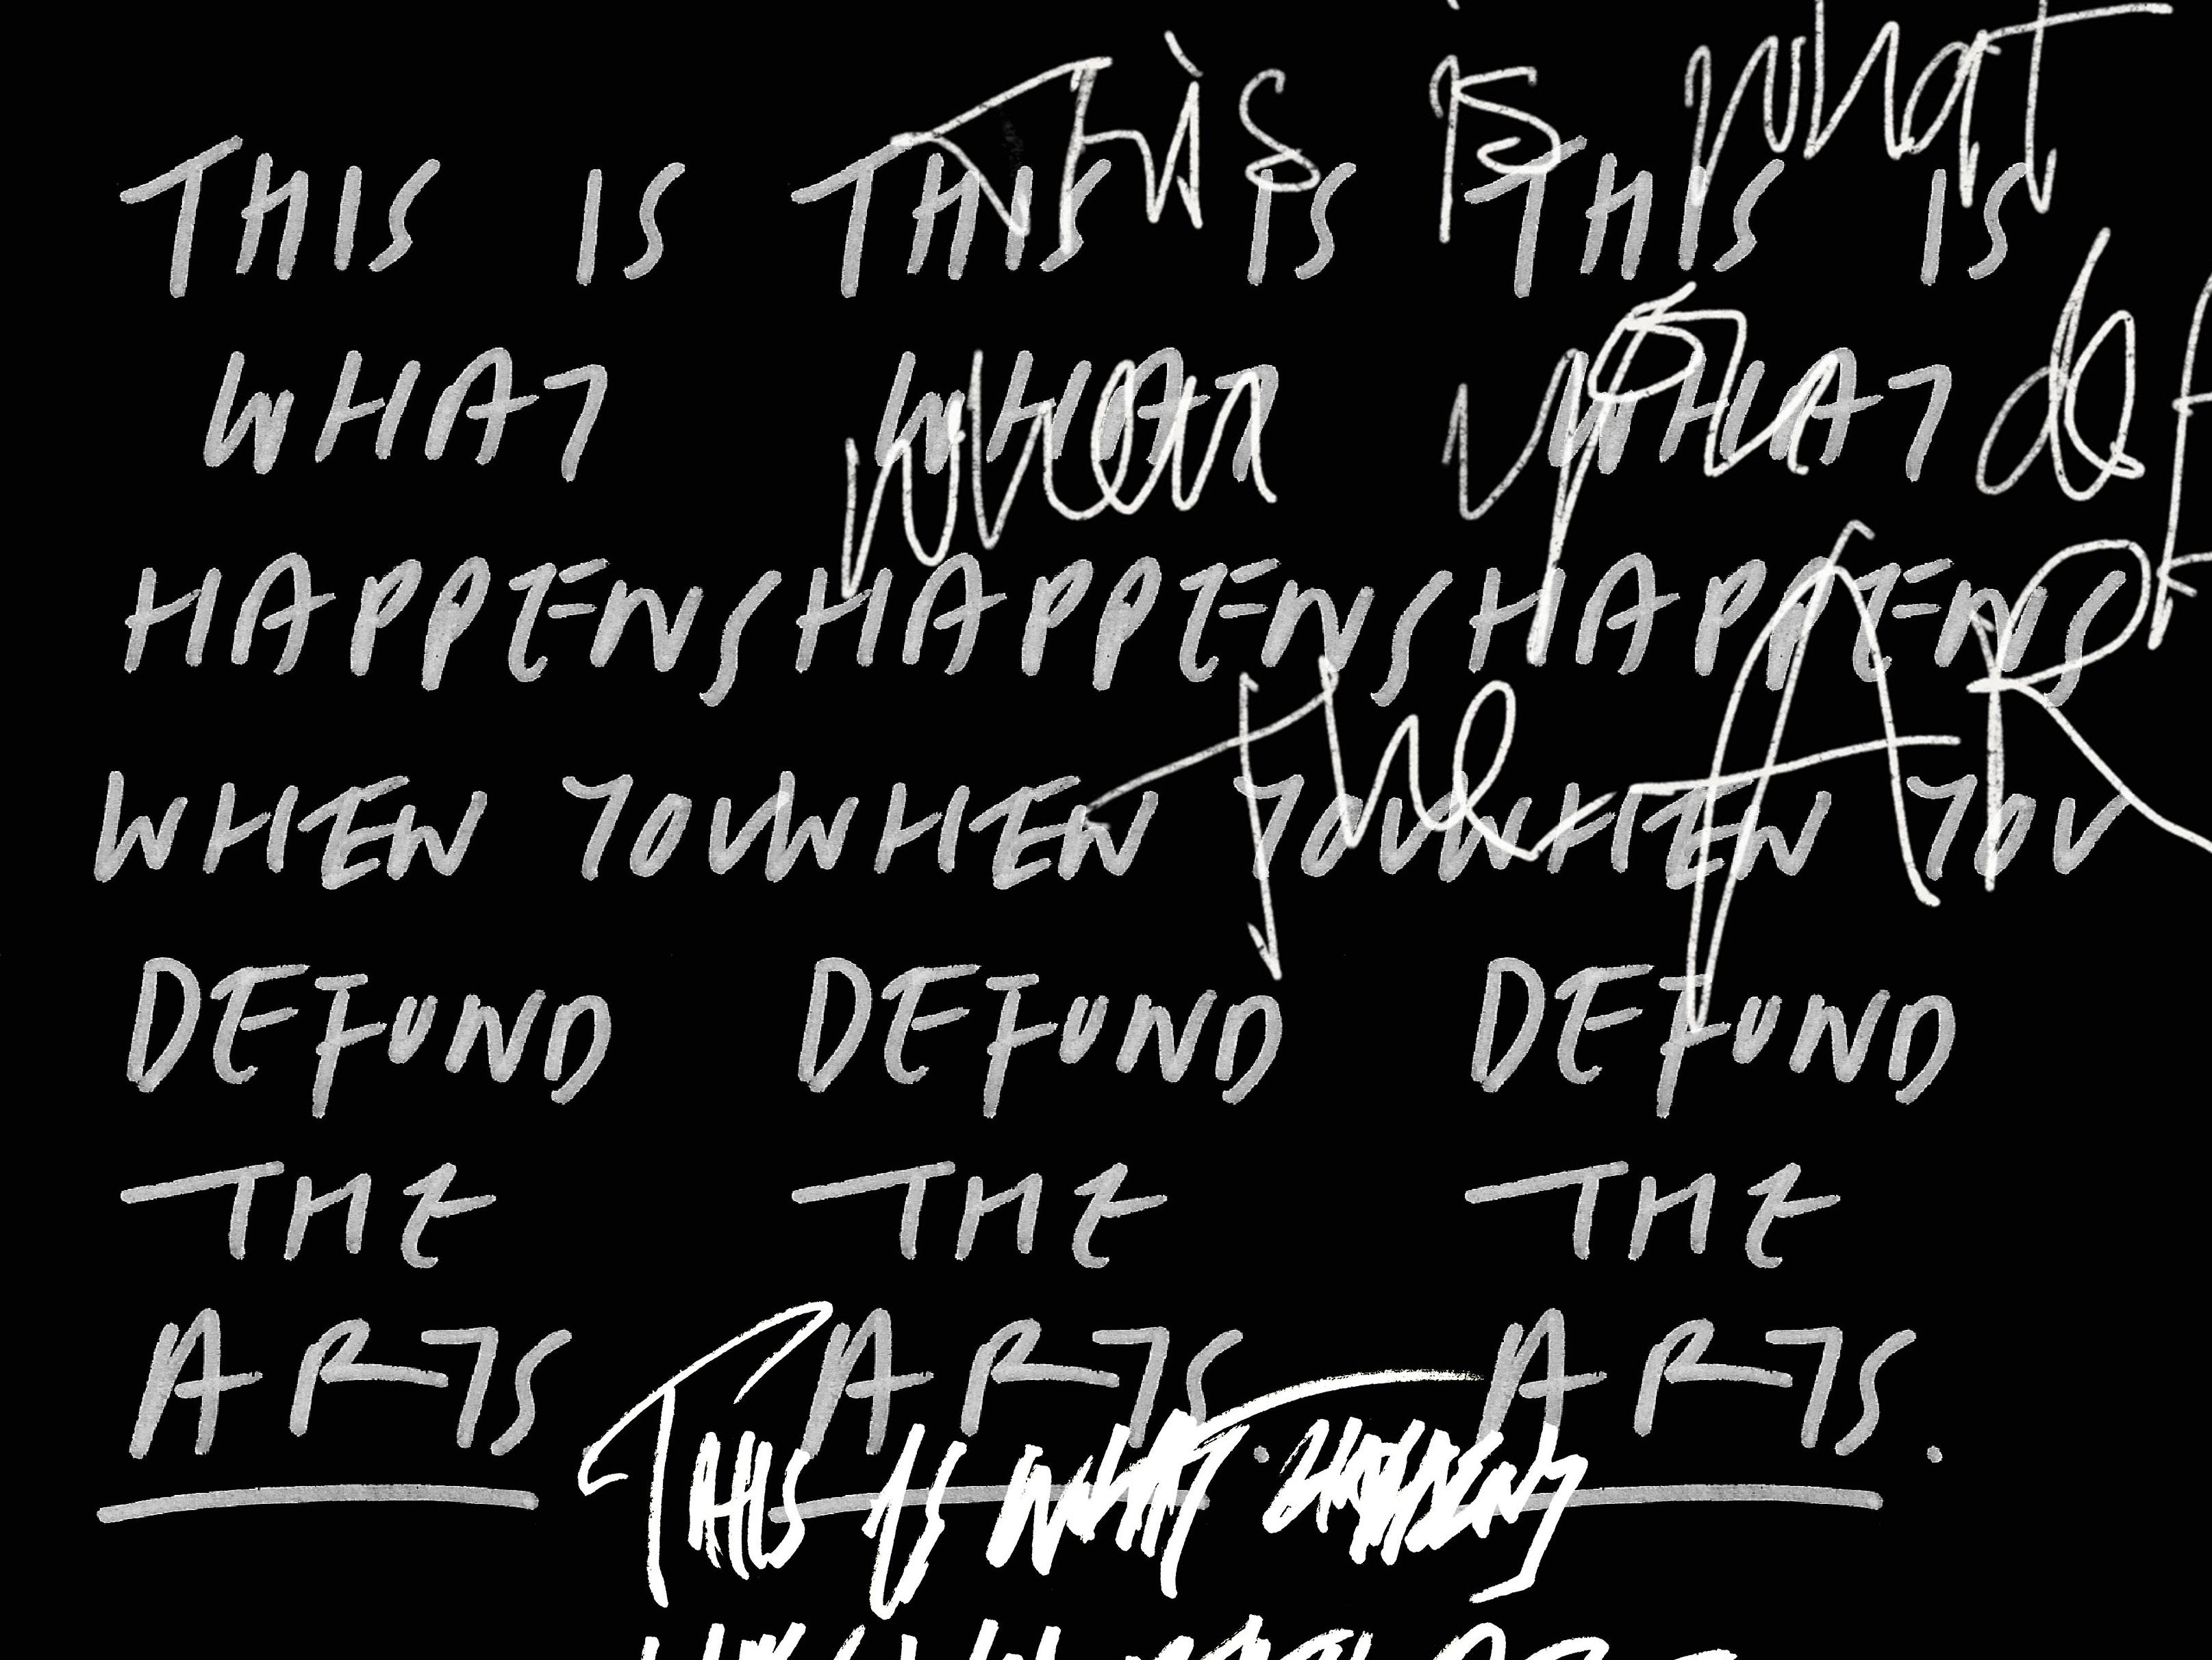 This is what
THIS IS THIS IS THIS IS
WHAT WHAT WHAT
when you def
HAPPENS HAPPENS HAPPENS
the AR
WHEN YOU WHEN YOU WHEN YOU
DEFUND DEFUND DEFUND
THE THE THE
ARTS ARTS. ARTS.
THIS IS WHAT HAPPENS